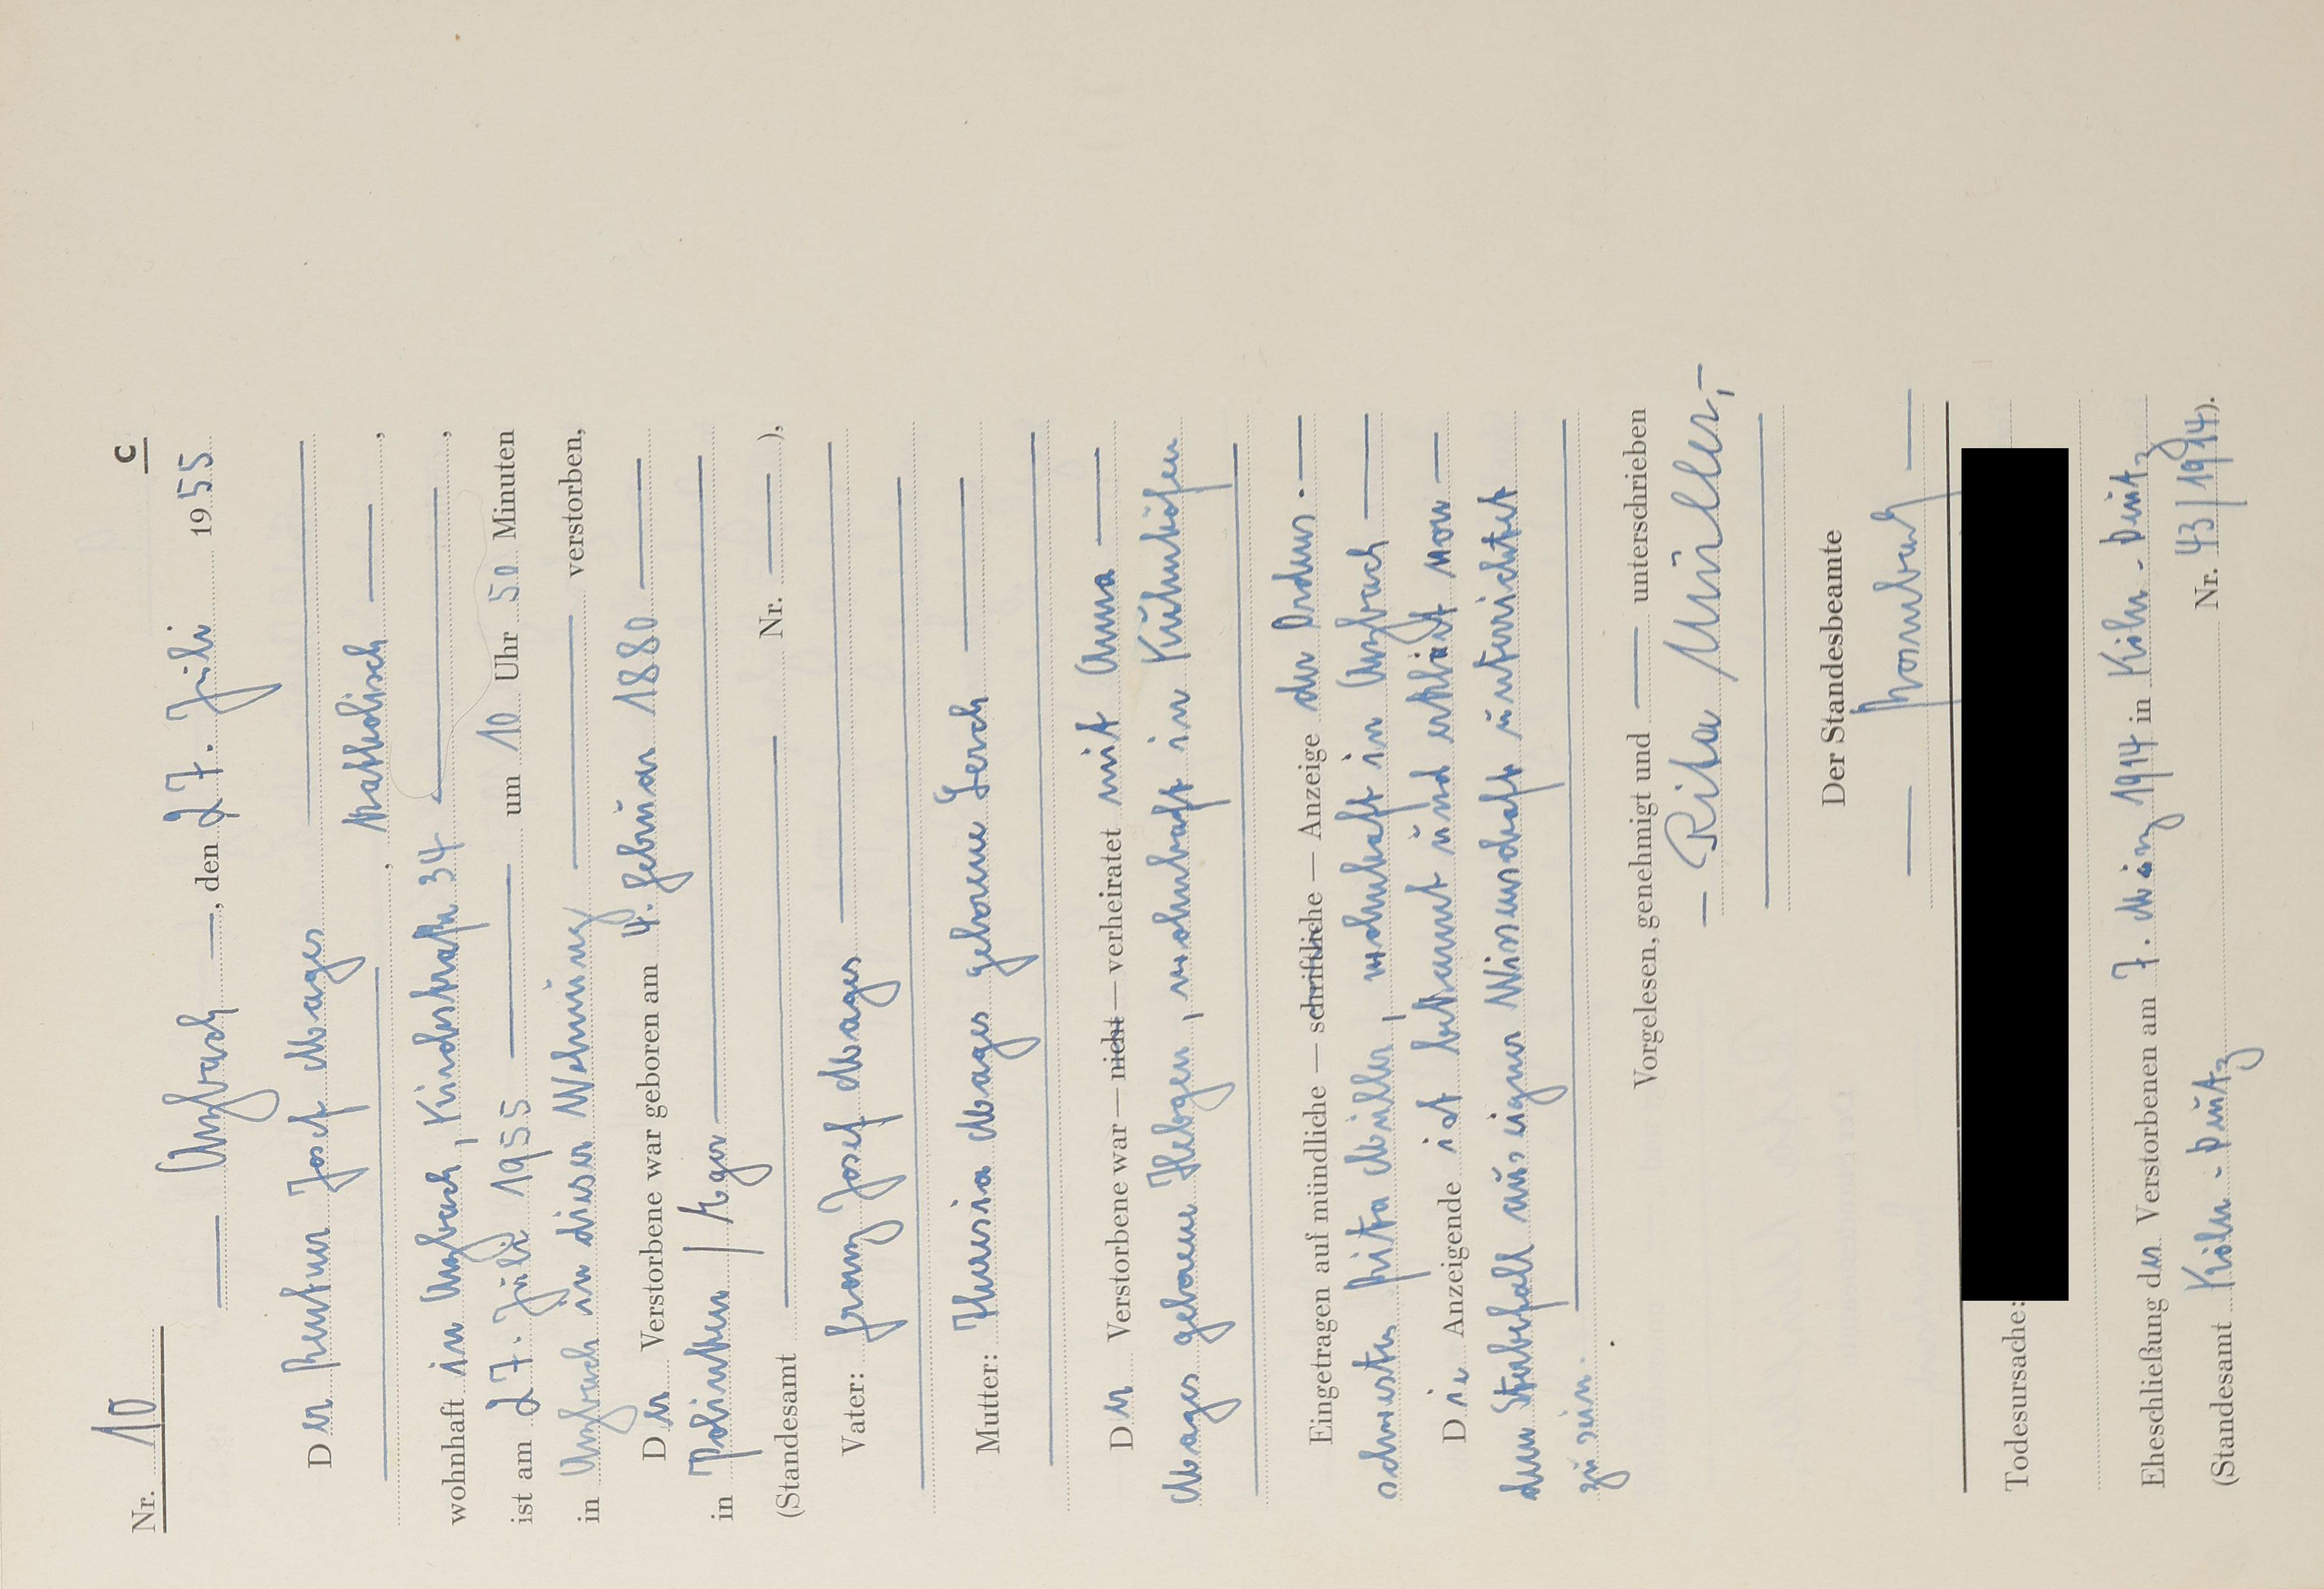 C
Nr. 10
— Anzbach —, den 27. Juli 1955
Der Rentner Josef Mages
, katholisch —,
wohnhaft in Anzbach, Kinderstraße 34 —,
ist am 27. Juli 1955 — um 10 Uhr 50 Minuten
in Anzbach in dieser Wohnung — verstorben,
Der Verstorbene war geboren am 4. Februar 1880 —
in
(Standesamt — Nr. — ),
Vater: Franz Josef Mages —
Mutter: Theresia Mages geborene Gerch —
Der Verstorbene war — nicht — verheiratet mit Anna —
Mages geborene Hebgen, wohnhaft in Kühnhöfen
Eingetragen auf mündliche — schriftliche — Anzeige der Ordens. —
schwester Rita Müller, wohnhaft in Anzbach —
Die Anzeigende ist bekannt und erklärt von —
dem Sterbefall aus eigner Wissenschaft unterrichtet
zu sein.
Vorgelesen, genehmigt und — unterschrieben
— Rita Müller, —
Der Standesbeamte
— —
Todesursache:
Eheschließung der Verstorbenen am 7. März 1914 in Köln-Deutz
(Standesamt Köln-Deutz Nr. 43/1914).